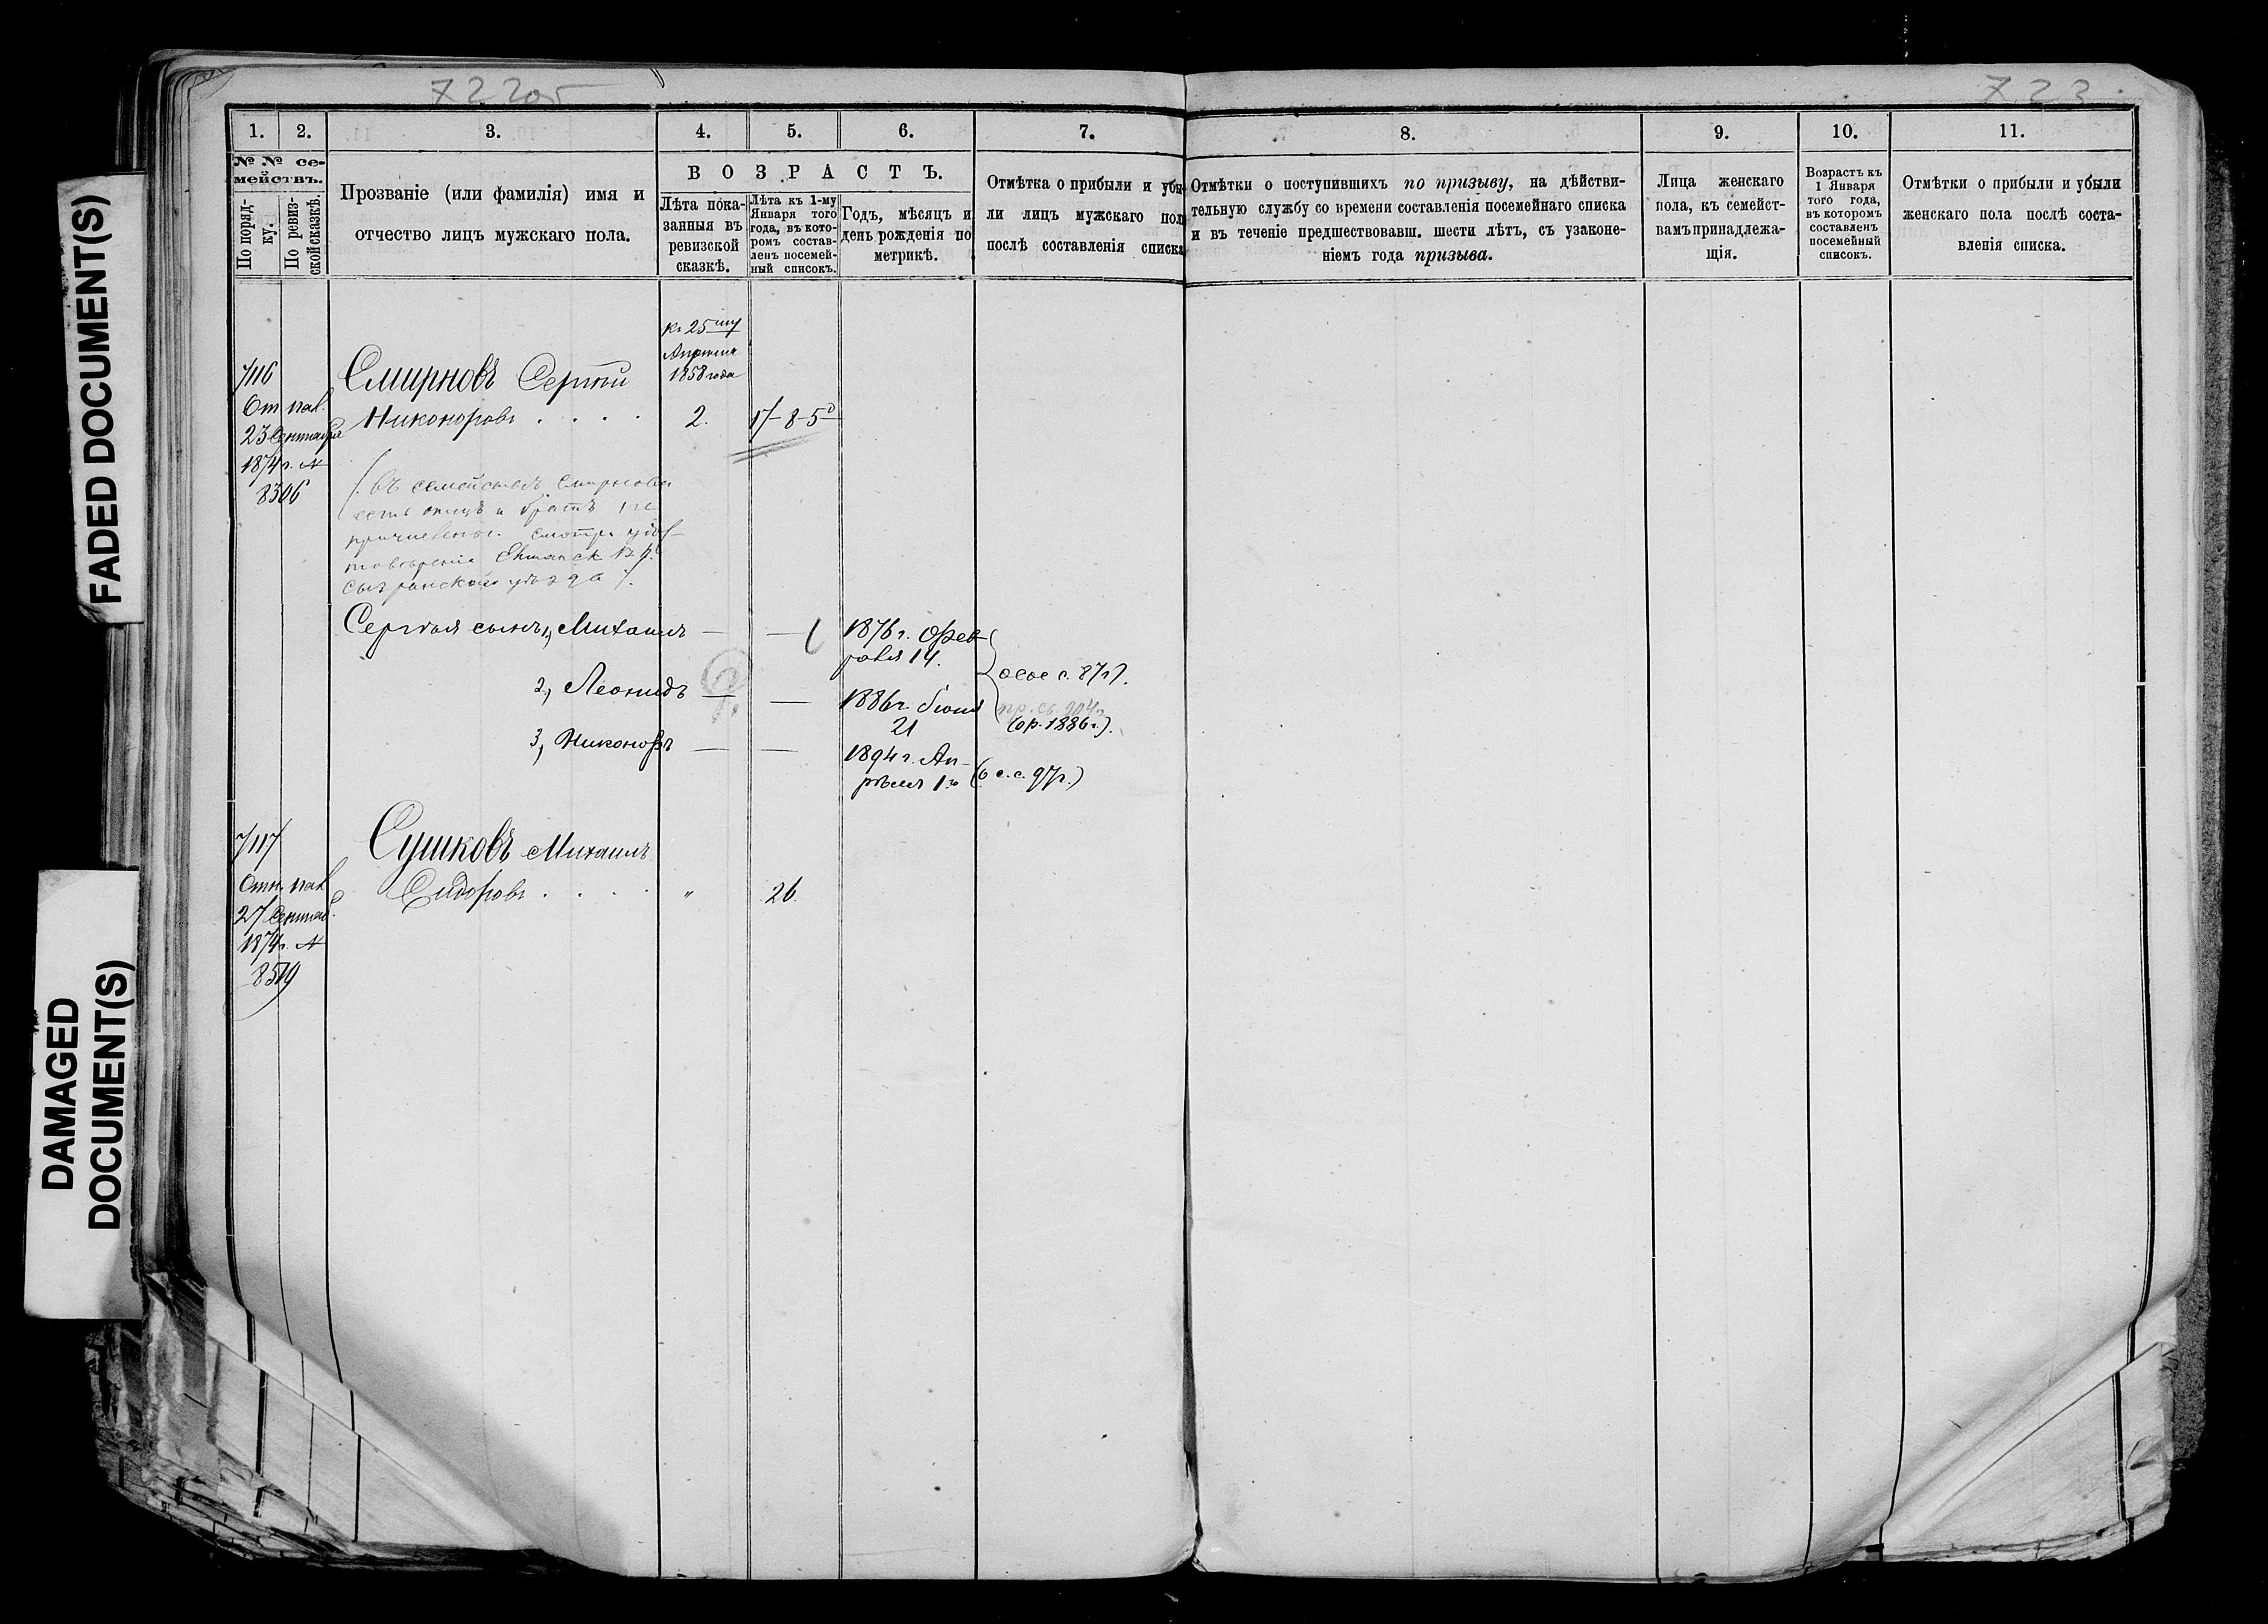 FADED DOCUMENT(S)
DAMAGED
DOCUMENT(S)
722 205
723
1.
2.
3.
4.
5.
6.
7.
8.
9.
10.
11.
№ № се-
мействъ.
По поряд-
ку.
По ревиз-
ской сказкѣ.
Прозваніе (или фамилія) имя и
отчество лицъ мужскаго пола.
ВОЗРАСТЪ.
Лѣта пока-
занныя въ
ревизской
сказкѣ.
Лѣта къ 1-му
Января того
года, въ кото-
ромъ состав-
ленъ посемей-
ный списокъ.
Годъ, мѣсяцъ и
день рожденія по
метрикѣ.
Отмѣтка о прибыли и убы-
ли лицъ мужскаго пола
послѣ составленія списка
Отмѣтки о поступившихъ по призыву, на дѣйстви-
тельную службу со времени составленія посемейнаго списка
и въ теченіе предшествовавш. шести лѣтъ, съ узаконе-
ніемъ года призыва.
Лица женскаго
пола, къ семейст-
вамъ принадлежа-
щія.
Возрастъ къ
1 Января
того года,
въ которомъ
составленъ
посемейный
списокъ.
Отмѣтки о прибыли и убыли
женскаго пола послѣ соста-
вленія списка.
къ 25му
Апрѣля
1858 года
7116
Смирновъ Сергѣй
Никоноровъ . . . . 2. 17-8-5
23 Сентября
1874 г. №
8306
въ семействѣ Смирнова
есть отецъ и братъ не
причислены. смотри удос-
товѣреніе
сызранскаго уѣзда
Сергѣя сынъ 1, Михаилъ — — 1876 г. Фев-
раля 14.
2, Леонидъ — — 1886 г. Іюня
21
(ор. 1886 г.).
3, Никоноръ — — 1894 г. Ап-
рѣля 1го (о с.с. 97г.)
7117
Сушковъ Михаилъ
Сидоровъ . . . . " 26.
27 Сентяб.
1874 г. №
8519